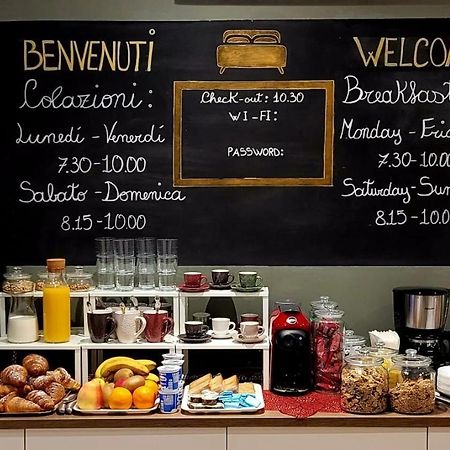 BENVENUTI
Colazioni:
Lunedí - Venerdí
7.30-10.00
Sabato - Domenica
8.15-10.00
Check-out: 10.30
WI-FI:
PASSWORD:
WELCO
Breakfast
Monday - Fri
7.30-10.0
Saturday-Sun
8.15-10.0